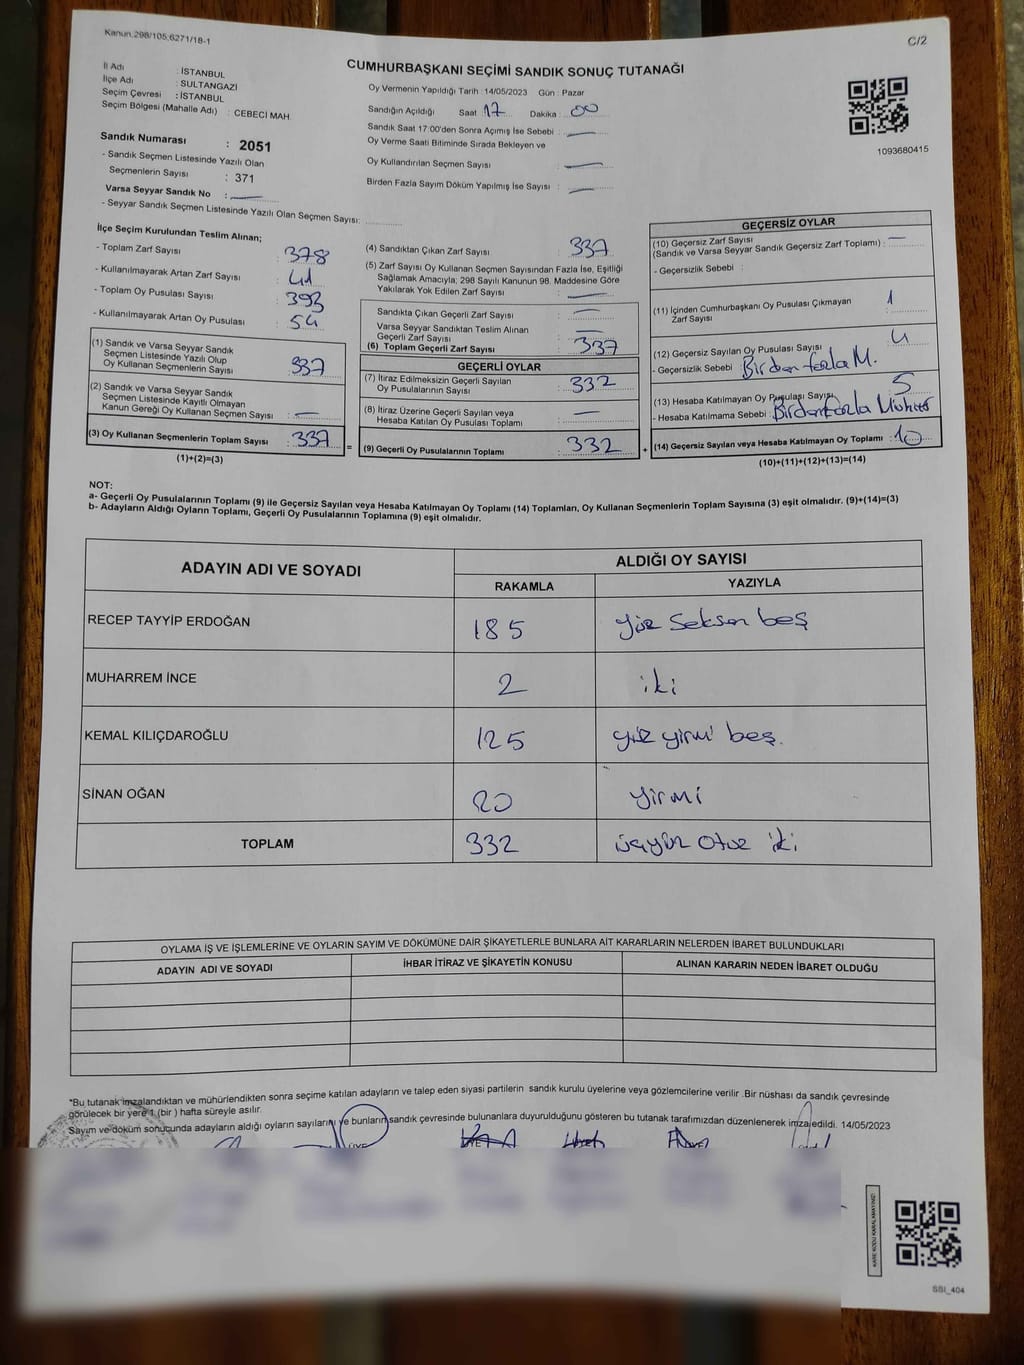 Kanun.298/105;6271/18-1
C/2
CUMHURBAŞKANI SEÇİMİ SANDIK SONUÇ TUTANAĞI
İl Adı : İSTANBUL
İlçe Adı : SULTANGAZİ
Seçim Çevresi : İSTANBUL
Seçim Bölgesi (Mahalle Adı) : CEBECİ MAH.
Sandık Numarası : 2051
- Sandık Seçmen Listesinde Yazılı Olan
Seçmenlerin Sayısı : 371
Varsa Seyyar Sandık No :
- Seyyar Sandık Seçmen Listesinde Yazılı Olan Seçmen Sayısı:
Oy Vermenin Yapıldığı Tarih : 14/05/2023 Gün : Pazar
Sandığın Açıldığı Saat 17 Dakika : 00
Sandık Saat 17:00'den Sonra Açımış İse Sebebi : —
Oy Verme Saati Bitiminde Sırada Bekleyen ve
Oy Kullandırılan Seçmen Sayısı : —
Birden Fazla Sayım Döküm Yapılmış İse Sayısı : —
1093680415
İlçe Seçim Kurulundan Teslim Alınan;
- Toplam Zarf Sayısı : 378
- Kullanılmayarak Artan Zarf Sayısı : 41
- Toplam Oy Pusulası Sayısı : 393
- Kullanılmayarak Artan Oy Pusulası : 54
(1) Sandık ve Varsa Seyyar Sandık
Seçmen Listesinde Yazılı Olup
Oy Kullanan Seçmenlerin Sayısı : 337
(2) Sandık ve Varsa Seyyar Sandık
Seçmen Listesinde Kayıtlı Olmayan
Kanun Gereği Oy Kullanan Seçmen Sayısı : —
(3) Oy Kullanan Seçmenlerin Toplam Sayısı : 337
(1)+(2)=(3)
(4) Sandıktan Çıkan Zarf Sayısı : 337
(5) Zarf Sayısı Oy Kullanan Seçmen Sayısından Fazla İse, Eşitliği
Sağlamak Amacıyla; 298 Sayılı Kanunun 98. Maddesine Göre
Yakılarak Yok Edilen Zarf Sayısı : —
Sandıkta Çıkan Geçerli Zarf Sayısı : —
Varsa Seyyar Sandıktan Teslim Alınan
Geçerli Zarf Sayısı : —
(6) Toplam Geçerli Zarf Sayısı : 337
GEÇERLİ OYLAR
(7) İtiraz Edilmeksizin Geçerli Sayılan
Oy Pusulalarının Sayısı : 332
(8) İtiraz Üzerine Geçerli Sayılan veya
Hesaba Katılan Oy Pusulası Toplamı : —
= (9) Geçerli Oy Pusulalarının Toplamı : 332 +
GEÇERSİZ OYLAR
(10) Geçersiz Zarf Sayısı
(Sandık ve Varsa Seyyar Sandık Geçersiz Zarf Toplamı) : —
- Geçersizlik Sebebi :
(11) İçinden Cumhurbaşkanı Oy Pusulası Çıkmayan
Zarf Sayısı : 1
(12) Geçersiz Sayılan Oy Pusulası Sayısı : 4
- Geçersizlik Sebebi : Birden fazla M.
(13) Hesaba Katılmayan Oy Pusulası Sayısı : 5
- Hesaba Katılmama Sebebi : Birden fazla Mühür
(14) Geçersiz Sayılan veya Hesaba Katılmayan Oy Toplamı : 10
(10)+(11)+(12)+(13)=(14)
NOT:
a- Geçerli Oy Pusulalarının Toplamı (9) ile Geçersiz Sayılan veya Hesaba Katılmayan Oy Toplamı (14) Toplamları, Oy Kullanan Seçmenlerin Toplam Sayısına (3) eşit olmalıdır. (9)+(14)=(3)
b- Adayların Aldığı Oyların Toplamı, Geçerli Oy Pusulalarının Toplamına (9) eşit olmalıdır.
ADAYIN ADI VE SOYADI
ALDIĞI OY SAYISI
RAKAMLA YAZIYLA
RECEP TAYYİP ERDOĞAN 185 yüz seksen beş
MUHARREM İNCE 2 iki
KEMAL KILIÇDAROĞLU 125 yüz yirmi beş.
SİNAN OĞAN 20 yirmi
TOPLAM 332 üçyüz otuz iki
OYLAMA İŞ VE İŞLEMLERİNE VE OYLARIN SAYIM VE DÖKÜMÜNE DAİR ŞİKAYETLERLE BUNLARA AİT KARARLARIN NELERDEN İBARET BULUNDUKLARI
ADAYIN ADI VE SOYADI İHBAR İTİRAZ VE ŞİKAYETİN KONUSU ALINAN KARARIN NEDEN İBARET OLDUĞU
*Bu tutanak imzalandıktan ve mühürlendikten sonra seçime katılan adayların ve talep eden siyasi partilerin sandık kurulu üyelerine veya gözlemcilerine verilir .Bir nüshası da sandık çevresinde
görülecek bir yere 1 (bir ) hafta süreyle asılır.
Sayım ve döküm sonucunda adayların aldığı oyların sayılarını ve bunların sandık çevresinde bulunanlara duyurulduğunu gösteren bu tutanak tarafımızdan düzenlenerek imza edildi. 14/05/2023
SSI_404